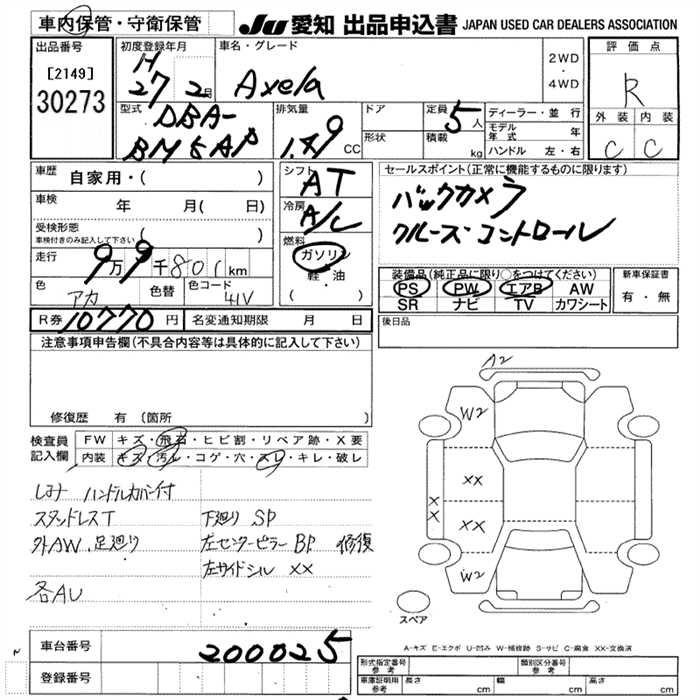 車内保管・守衛保管
JU 愛知 出品申込書 JAPAN USED CAR DEALERS ASSOCIATION
出品番号
[2149]
30273
初度登録年月
H
27 2月
車名・グレード
Axela
2WD
・
4WD
評価点
R
外装 内装
C C
型式
DBA-
BM5AP
排気量
CC
ドア
形状
定員
5人
積載
kg
ディーラー・並行
モデル年式 年
ハンドル 左・右
車歴
自家用・( )
車検
年 月( 日)
受検形態
車検付きのみ記入して下さい
走行
9万9千801km
色
アカ
色替
色コード
41V
シフト
AT
冷房
A/C
燃料
ガソリン
軽・油
( )
セールスポイント(正常に機能するものに限ります)
バックカメラ
クルーズコントロール
装備品(純正品に限り○をつけてください)
PS PW エアB AW
SR ナビ TV カワシート
新車保証書
有・無
R券 10770円
名変通知期限 月 日
後日品
注意事項申告欄(不具合内容等は具体的に記入して下さい)
修復歴 有 (箇所 )
検査員
記入欄
FW キズ・飛石・ヒビ割・リペア跡・X要
内装 キズ・汚レ・コゲ・穴・スレ・キレ・破レ
ハンドルカバー付
スタッドレスT
外AW. 足廻り
各AU
下廻り SP
左センターピラー BP 修復
左サイドシル XX
A2
W2
XX
XX
XX
W2
スペア
A-キズ E-エクボ U-凹み W-補修跡 S-サビ C-腐食 XX-交換済
車台番号
200025
登録番号
型式指定番号
参考
類別区分番号
参考
車庫証明用
参考
長さ cm
幅 cm
高さ cm